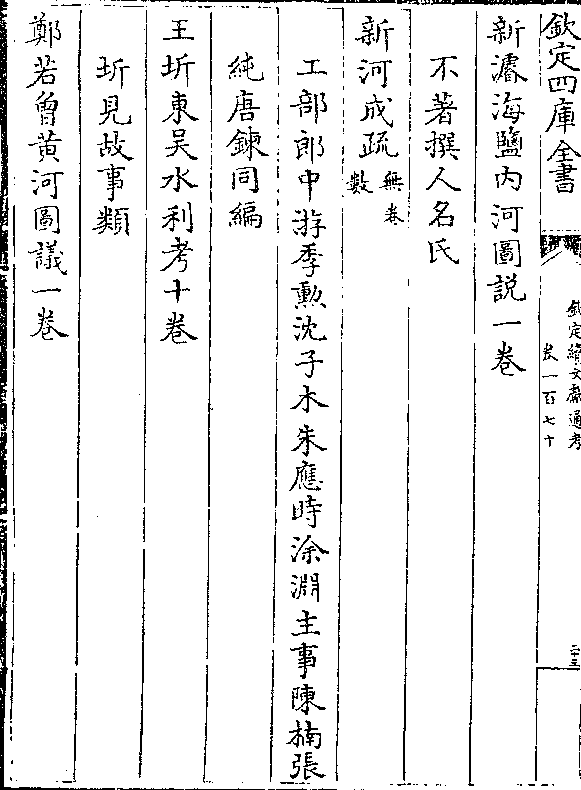 欽定四庫全書
欽定續文獻通考
卷一百七十
二十三
新濬海鹽內河圖説一卷
不著撰人名氏
新河成疏無卷數
工部郎中游季勲沈子木朱應時涂淵主事陳楠張
純唐鍊同編
王圻東吳水利考十卷
圻見故事類
鄭若曾黃河圖議一卷